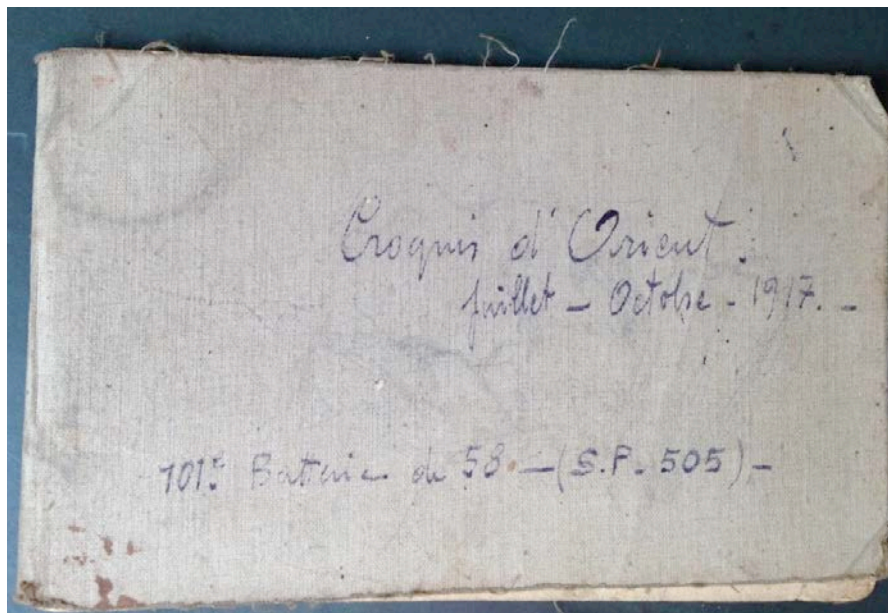 Croquis d'Orient.
Juillet - Octobre - 1917. -
101e Batterie de 58 - (S.P. 505) -